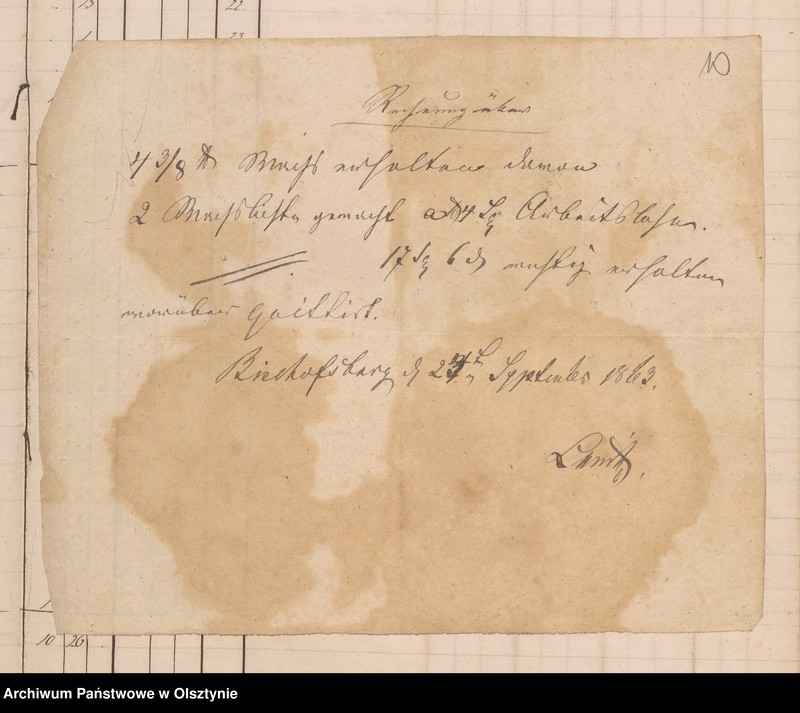 10
Rechnung über
4 3/8 ℔ Wachs erhalten davon
2 Wachslichte gemacht a ℔ 4 Sg Arbeitslohn.
17 Sg 6 d richtig erhalten
worüber quittirt.
Bischofsburg d 24t September 1863.
13
22
23
1
10 26
Archiwum Państwowe w Olsztynie